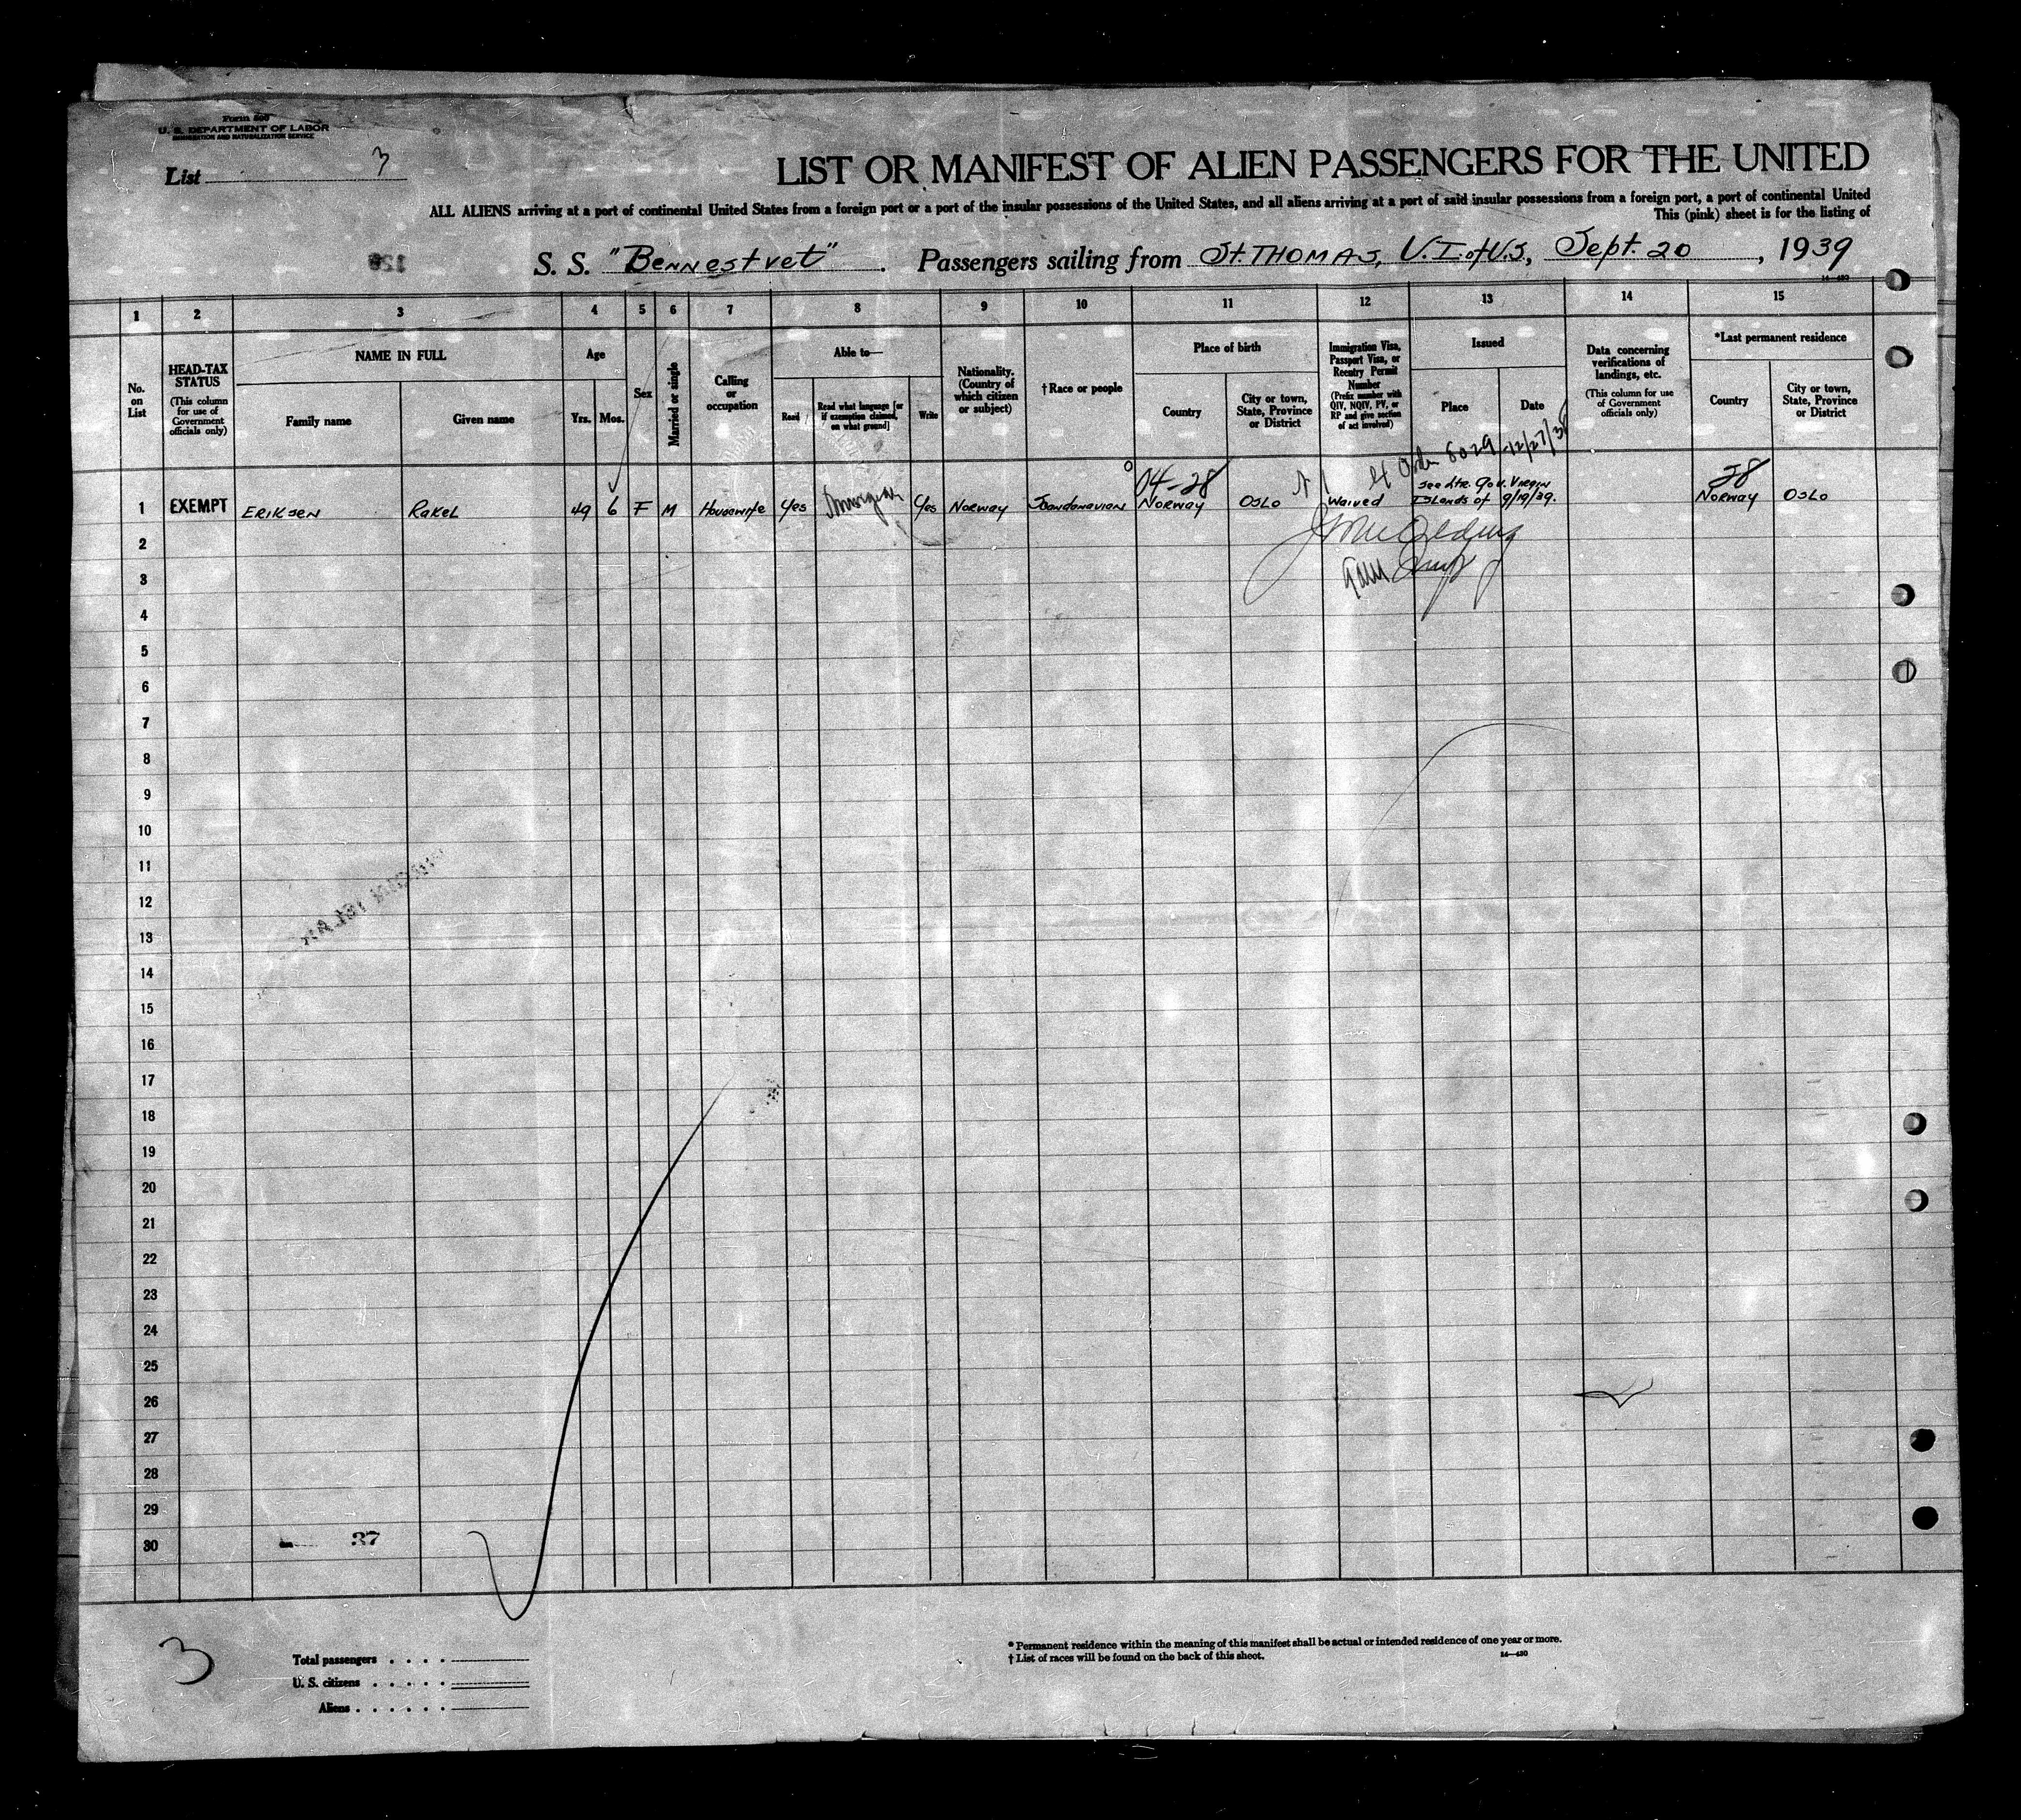 Form 500
U. S. DEPARTMENT OF LABOR
IMMIGRATION AND NATURALIZATION SERVICE
List 3
LIST OR MANIFEST OF ALIEN PASSENGERS FOR THE UNITED
ALL ALIENS arriving at a port of continental United States from a foreign port or a port of the insular possessions of the United States, and all aliens arriving at a port of said insular possessions from a foreign port, a port of continental United
This (pink) sheet is for the listing of
S. S. "Bennestvet" Passengers sailing from St. THOMAS, V.I. of U.S., Sept. 20, 1939
14—430
1 2 3 4 5 6 7 8 9 10 11 12 13 14 15
No. on List
HEAD-TAX STATUS
(This column for use of Government officials only)
NAME IN FULL
Family name
Given name
Age
Yrs.
Mos.
Sex
Married or single
Calling or occupation
Able to—
Read
Read what language [or if exemption claimed, on what ground]
Write
Nationality. (Country of which citizen or subject)
†Race or people
Place of birth
Country
City or town, State, Province or District
Immigration Visa, Passport Visa, or Reentry Permit Number
(Prefix number with QIV, NQIV, PV, or RP and give section of act involved)
Issued
Place
Date
Data concerning verifications of landings, etc.
(This column for use of Government officials only)
*Last permanent residence
Country
City or town, State, Province or District
Order 8029 12/27/38
04-28
28
See ltr. Gov. Virgin
1 EXEMPT ERIKSEN Rakel 49 6 F M Housewife Yes Norwegian Yes Norway Scandanavian Norway Oslo Waived Islands of 9/19/39. Norway Oslo
2
3
4
5
6
7
8
9
10
11
12
13
14
15
16
17
18
19
20
21
22
23
24
25
26
27
28
29
30
37
3
Total passengers
U. S. citizens
Aliens
* Permanent residence within the meaning of this manifest shall be actual or intended residence of one year or more.
† List of races will be found on the back of this sheet.
14—430